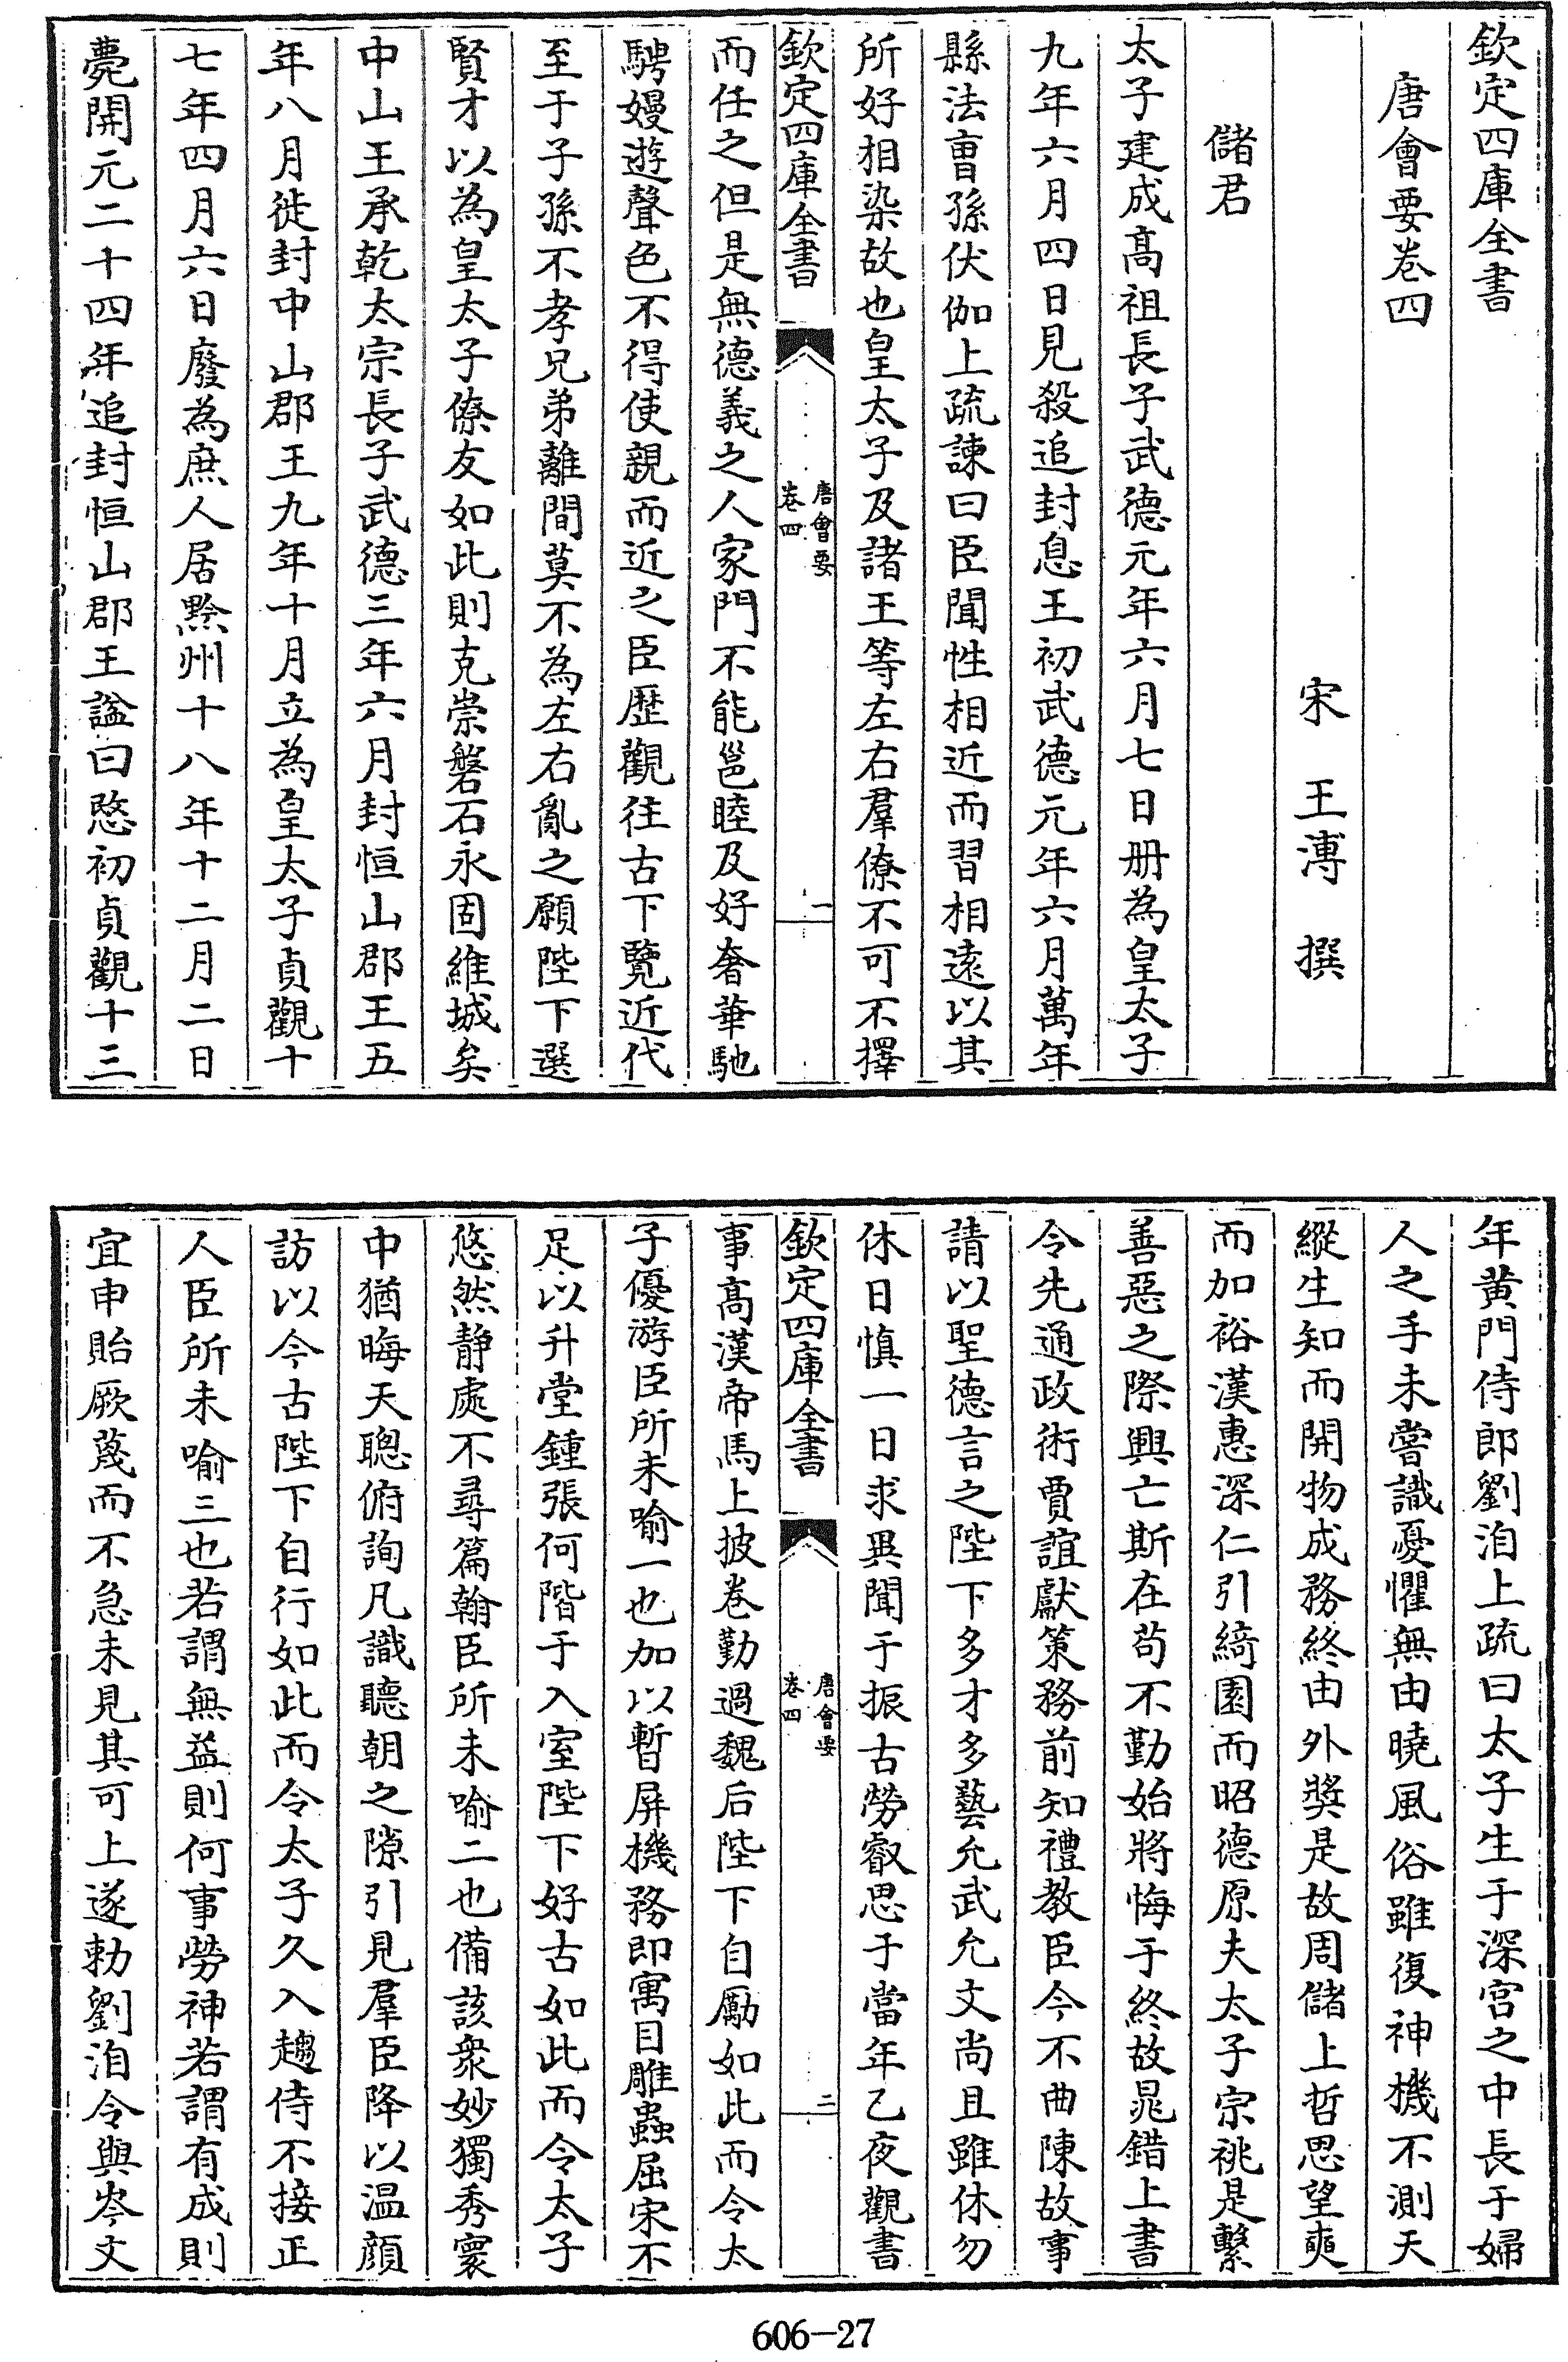 欽定四庫全書
唐會要卷四
宋 王溥 撰
儲君
太子建成高祖長子武德元年六月七日册為皇太子
九年六月四日見殺追封息王初武德元年六月萬年
縣法曹孫伏伽上疏諫曰臣聞性相近而習相遠以其
所好相染故也皇太子及諸王等左右羣僚不可不擇
欽定四庫全書
唐會要
卷四
一
而任之但是無德義之人家門不能邕睦及好奢華馳
騁嫚遊聲色不得使親而近之臣歴觀往古下覽近代
至于子孫不孝兄弟離間莫不為左右亂之願陛下選
賢才以為皇太子僚友如此則克崇磐石永固維城矣
中山王承乾太宗長子武德三年六月封恒山郡王五
年八月徙封中山郡王九年十月立為皇太子貞觀十
七年四月六日廢為庶人居黔州十八年十二月二日
薨開元二十四年追封恒山郡王諡曰愍初貞觀十三
年黄門侍郎劉洎上疏曰太子生于深宫之中長于婦
人之手未嘗識憂懼無由曉風俗雖復神機不測天
縱生知而開物成務終由外奬是故周儲上哲思望奭
而加裕漢惠深仁引綺園而昭德原夫太子宗祧是繫
善惡之際興亡斯在茍不勤始將悔于終故晁錯上書
令先通政術賈誼獻策務前知禮教臣今不曲陳故事
請以聖德言之陛下多才多藝允武允文尚且雖休勿
休日慎一日求異聞于振古勞叡思于當年乙夜觀書
欽定四庫全書
唐會要
卷四
二
事高漢帝馬上披卷勤過魏后陛下自勵如此而令太
子優游臣所未喻一也加以暫屏機務即寓目雕蟲屈宋不
足以升堂鍾張何階于入室陛下好古如此而令太子
悠然静處不尋篇翰臣所未喻二也備該衆妙獨秀寰
中猶晦天聰俯詢凡識聽朝之隙引見羣臣降以温顔
訪以今古陛下自行如此而令太子久入趨侍不接正
人臣所未喻三也若謂無益則何事勞神若謂有成則
宜申貽厥蔑而不急未見其可上遂勅劉洎令與岑文
606-27